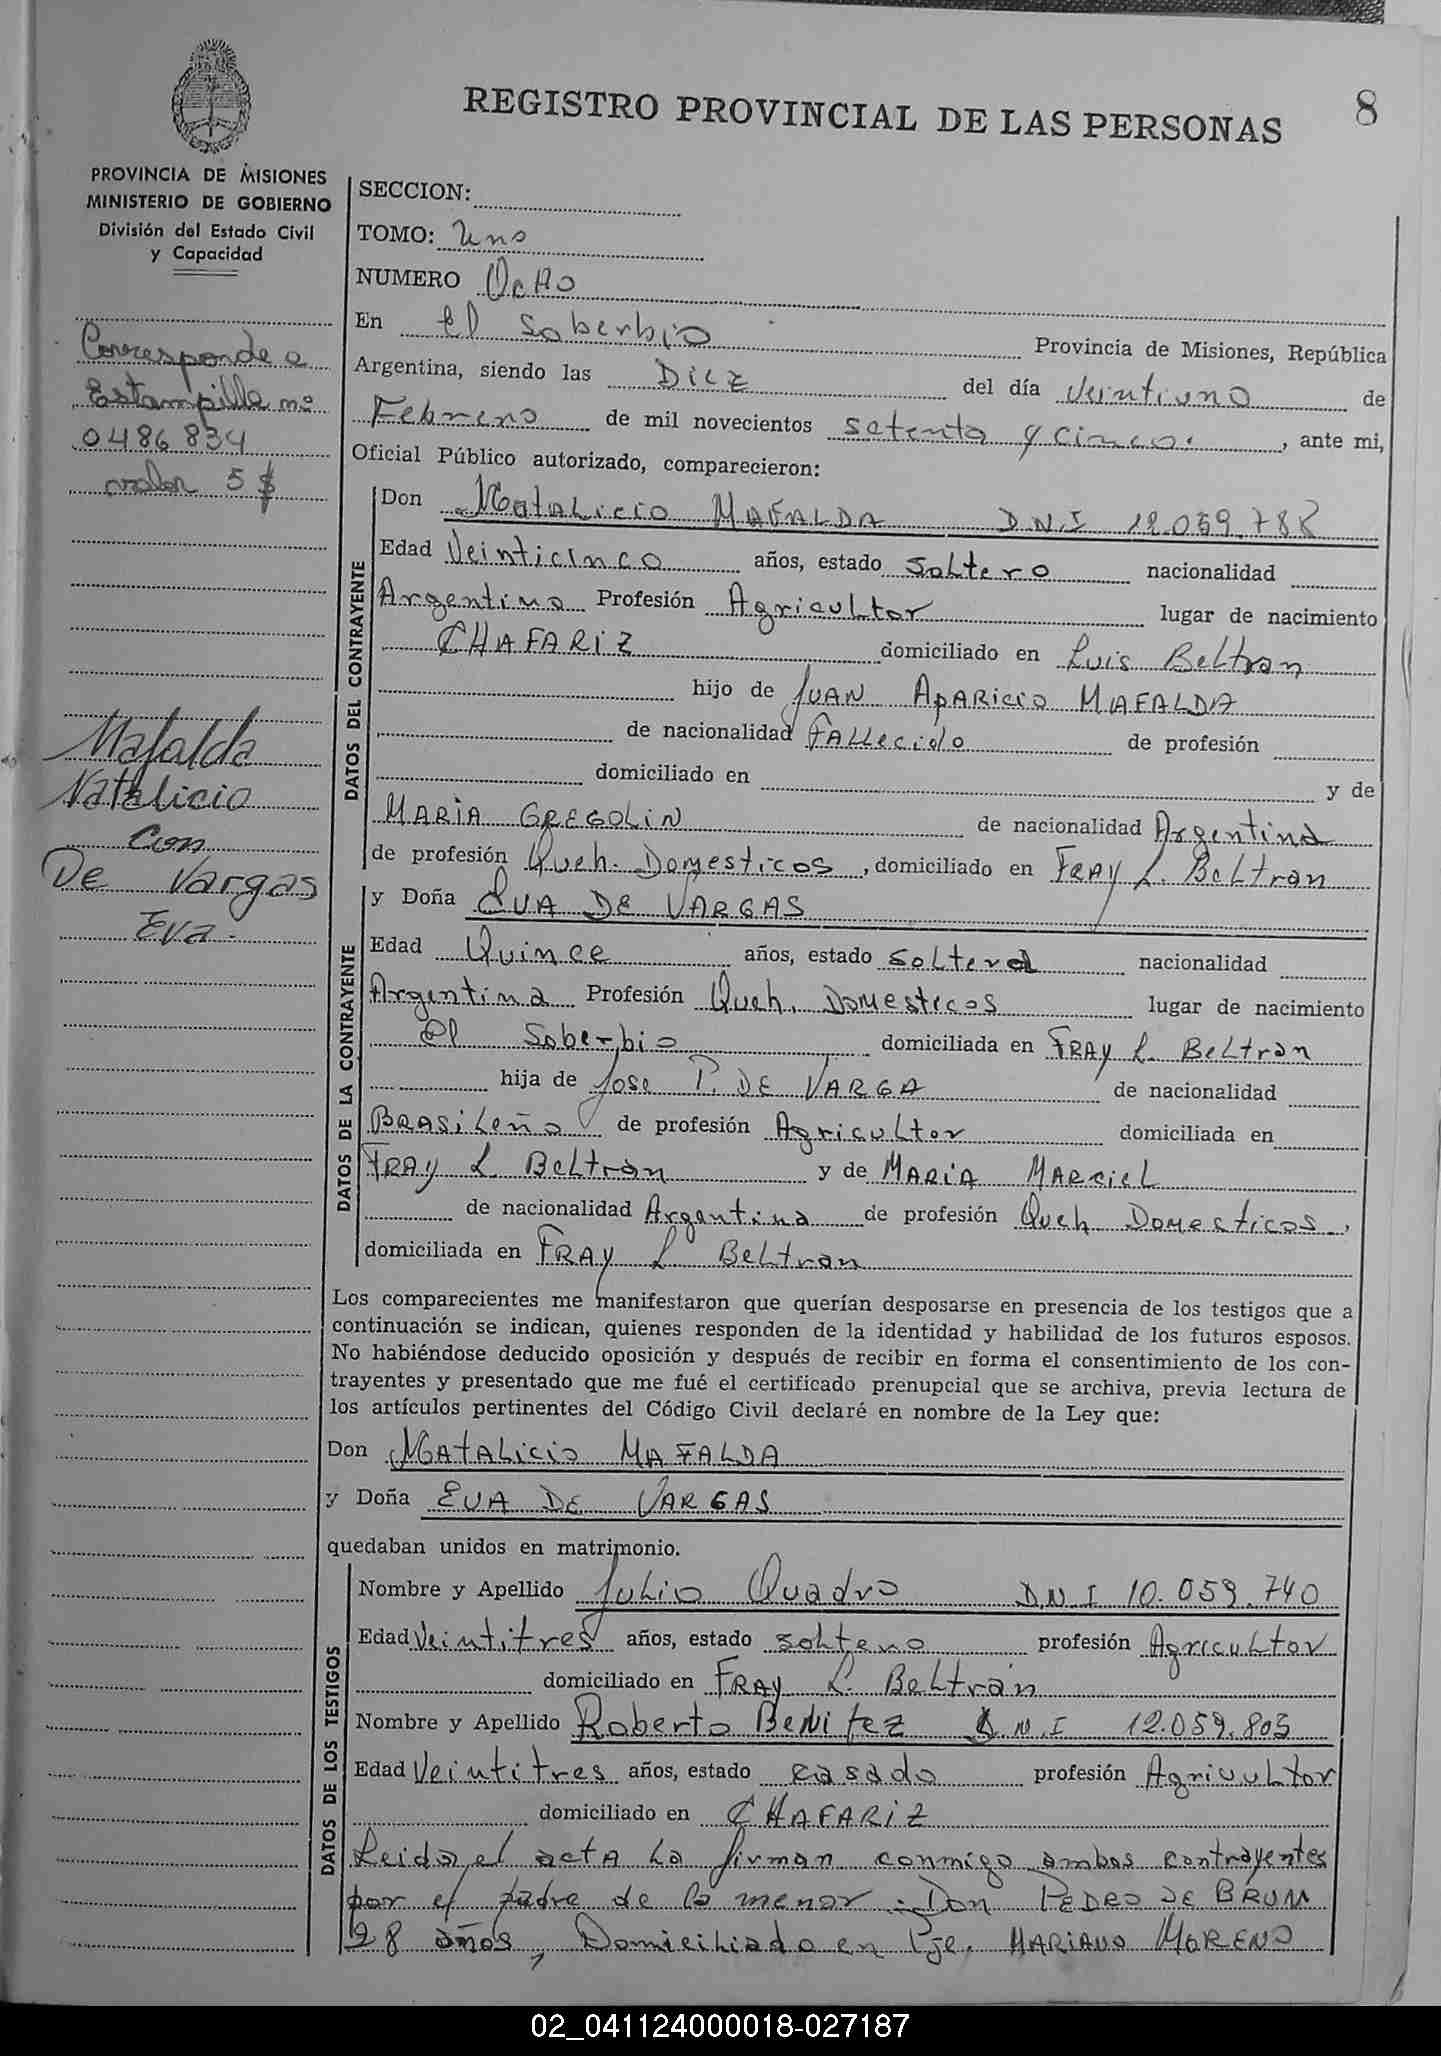 REGISTRO PROVINCIAL DE LAS PERSONAS
8
PROVINCIA DE MISIONES
MINISTERIO DE GOBIERNO
División del Estado Civil
y Capacidad
Corresponde a
Estampilla nº
0486834
valor 5 $
Mafalda
Natalicio
con
De Vargas
Eva.
SECCION:
TOMO: Uno
NUMERO Ocho
En El Soberbio Provincia de Misiones, República
Argentina, siendo las Diez del día veintiuno de
Febrero de mil novecientos setenta y cinco. , ante mi,
Oficial Público autorizado, comparecieron:
DATOS DEL CONTRAYENTE
Don Natalicio MAFALDA D.N.I 12.059.788
Edad Veinticinco años, estado Soltero nacionalidad
Argentino Profesión Agricultor lugar de nacimiento
CHAFARIZ domiciliado en Luis Beltran
hijo de JUAN APARicio MAFALDA
de nacionalidad FALLecido de profesión
domiciliado en y de
MARIA GREGOLIN de nacionalidad Argentina
de profesión Queh. Domesticos , domiciliado en FRAY L. Beltran
DATOS DE LA CONTRAYENTE
y Doña EVA DE VARGAS
Edad Quince años, estado soltera nacionalidad
Argentina Profesión Queh. Domesticos lugar de nacimiento
El Soberbio domiciliada en FRAY L. Beltran
hija de Jose P. DE VARGA de nacionalidad
BRASileño de profesión Agricultor domiciliada en
FRAY L Beltran y de MARIA MARCieL
de nacionalidad Argentina de profesión Queh Domesticos ,
domiciliada en FRAY L Beltran
Los comparecientes me manifestaron que querían desposarse en presencia de los testigos que a
continuación se indican, quienes responden de la identidad y habilidad de los futuros esposos.
No habiéndose deducido oposición y después de recibir en forma el consentimiento de los con-
trayentes y presentado que me fué el certificado prenupcial que se archiva, previa lectura de
los artículos pertinentes del Código Civil declaré en nombre de la Ley que:
Don NATALicio MAFALDA
y Doña EVA DE VARGAS
quedaban unidos en matrimonio.
DATOS DE LOS TESTIGOS
Nombre y Apellido Julio Quadro D.N.I 10.059.740
Edad Veintitres años, estado soltero profesión Agricultor
domiciliado en FRAY L. Beltran
Nombre y Apellido Roberto BENitez D.N.I 12.059.803
Edad Veintitres años, estado casado profesión Agricultor
domiciliado en CHAFARIZ
Leida el acta la firman conmigo ambos contrayentes
por el padre de la menor Don PEDRO DE BRUM
28 años, Domiciliado en Pje. MARIANO MORENO
02_041124000018-027187